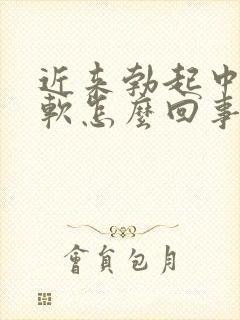 近来勃起中
軟怎麽回事
會員包月